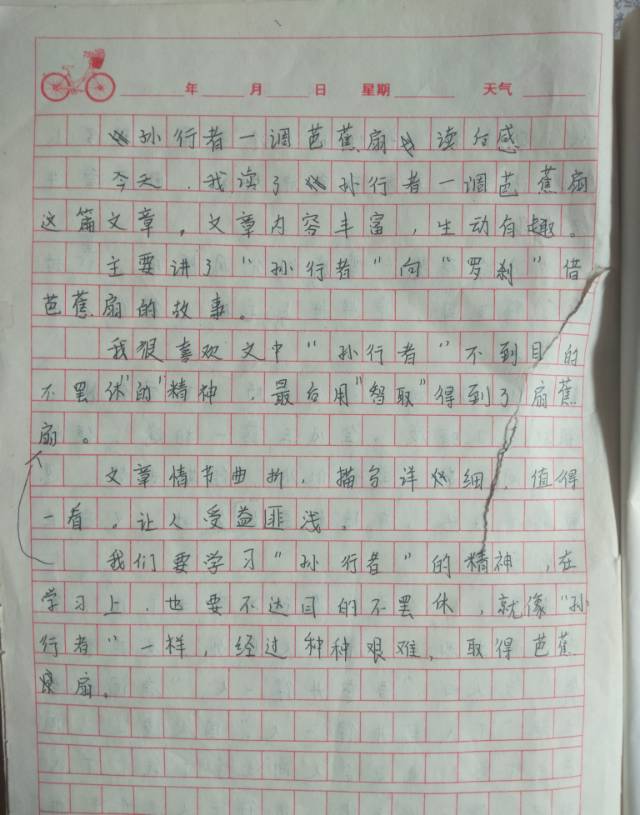 年 月 日 星期 天气
孙行者一调芭蕉扇 读后感
今天,我读了孙行者一调芭蕉扇
这篇文章。文章内容丰富,生动有趣。
主要讲了“孙行者”向“罗刹”借
芭蕉扇的故事。
我狠喜欢文中“孙行者”不到目的
不罢休“的”精神,最后用“智取”得到了扇蕉
扇。
文章情节曲折,描写详细,值得
一看。让人受益匪浅。
我们要学习“孙行者”的精神,在
学习上,也要不达目的不罢休,就像“孙
行者”一样,经过种种艰难,取得芭蕉
扇。